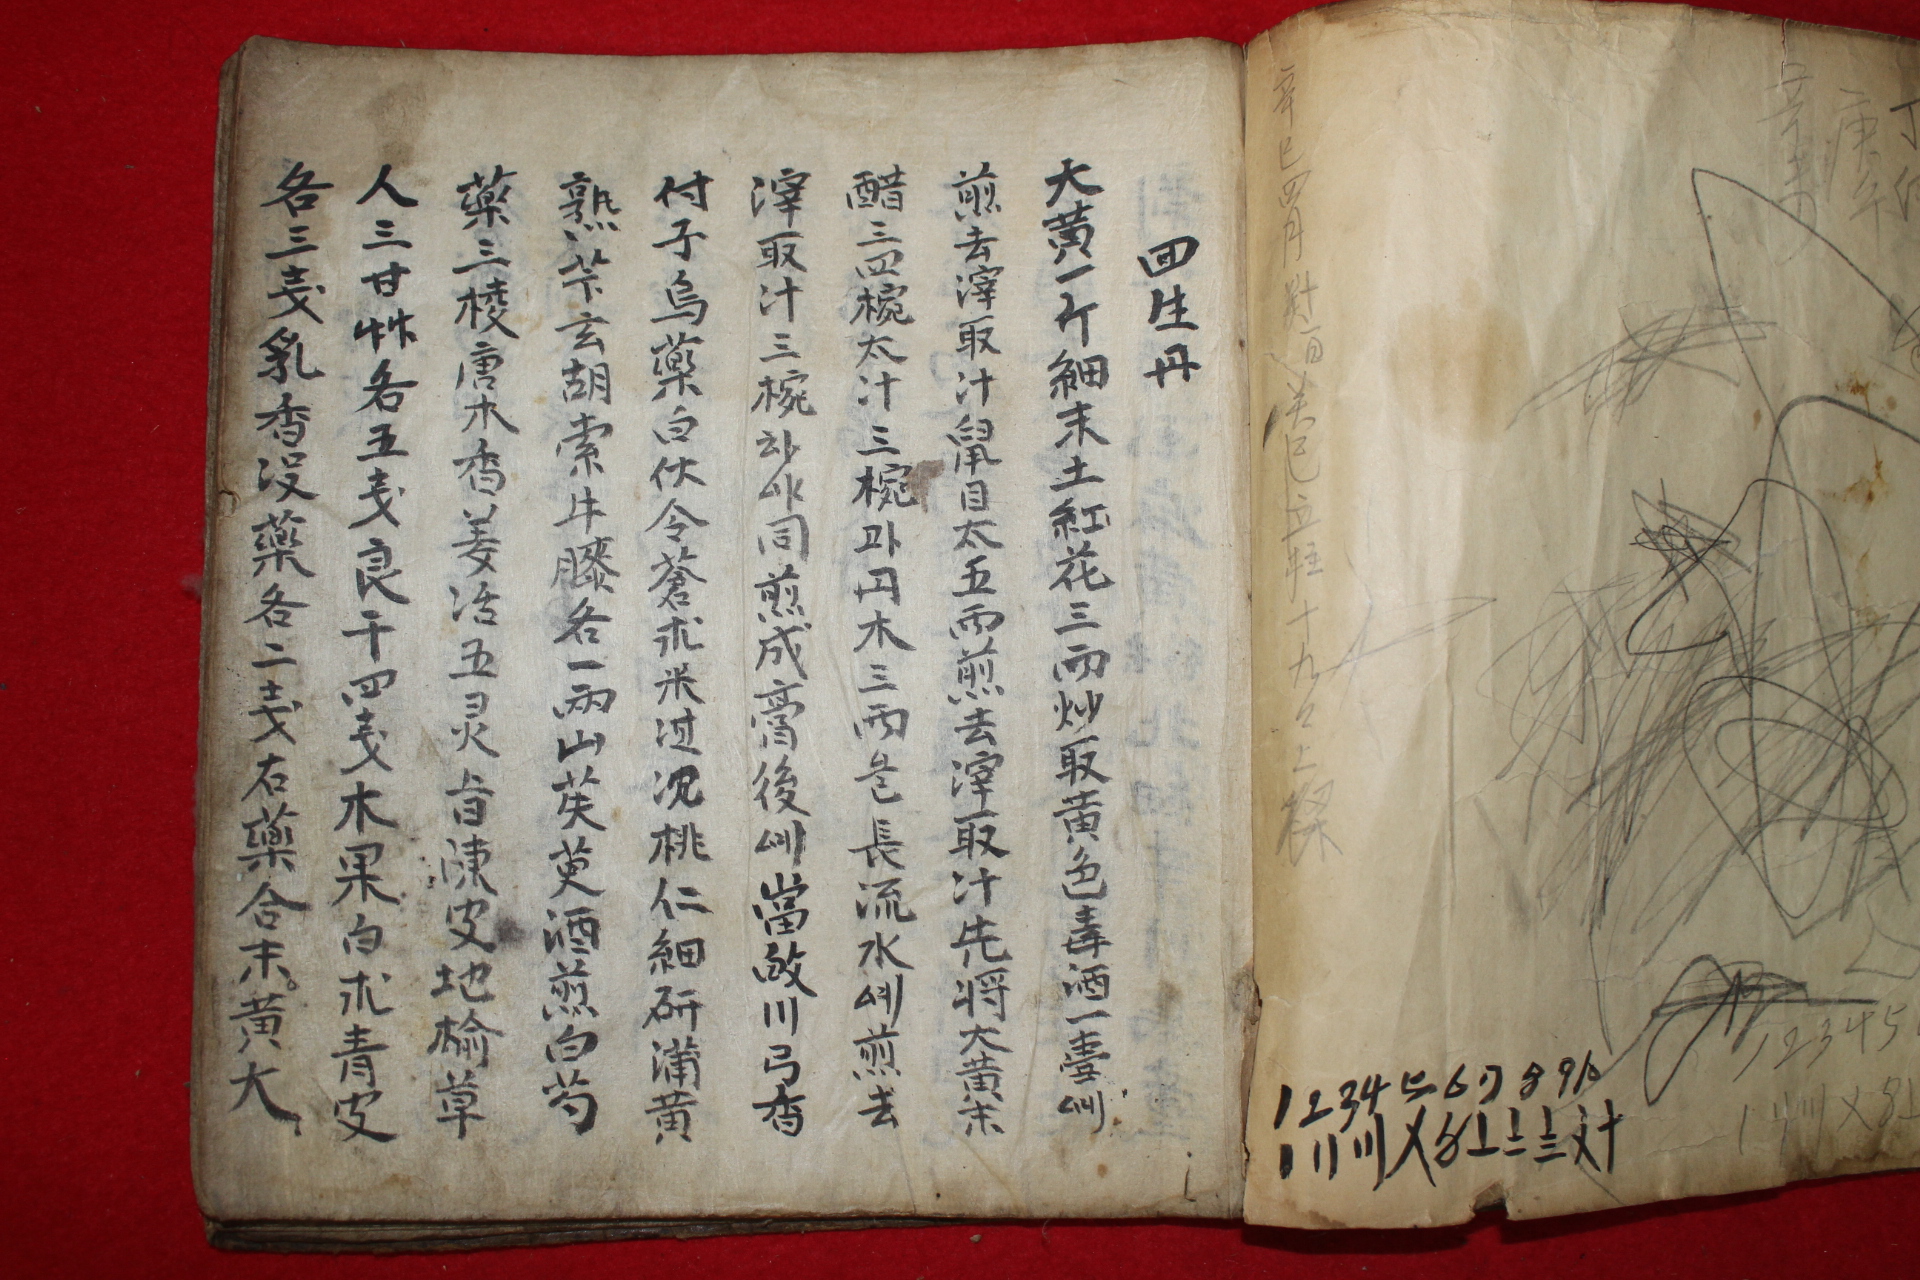 辛巳四月 日癸巳立柱十九日上樑
1 2 3 4 5 6 7 8 9 10
〡〢〣〤〥〦〧〨〩计
12345
囬生丹
大黃一斤細末土紅花三兩炒取黃色毒酒一壺에
煎去滓取汁鼠目太五兩煎去滓取汁先将大黃末
醋三四椀太汁三椀과丹木三兩을長流水에煎去
滓取汁三椀하야同煎成膏後에當敀川弓香
付子烏藥白伏令蒼朮米过沉桃仁細研蒲黃
熟芐玄胡索牛膝各一兩山茱萸酒煎白芍
藥三棱唐木香姜活五灵旨陳皮地榆草
人三甘艸各五戔良干四戔木果白朮青皮
各三戔乳香没藥各二戔右藥合末。黃大